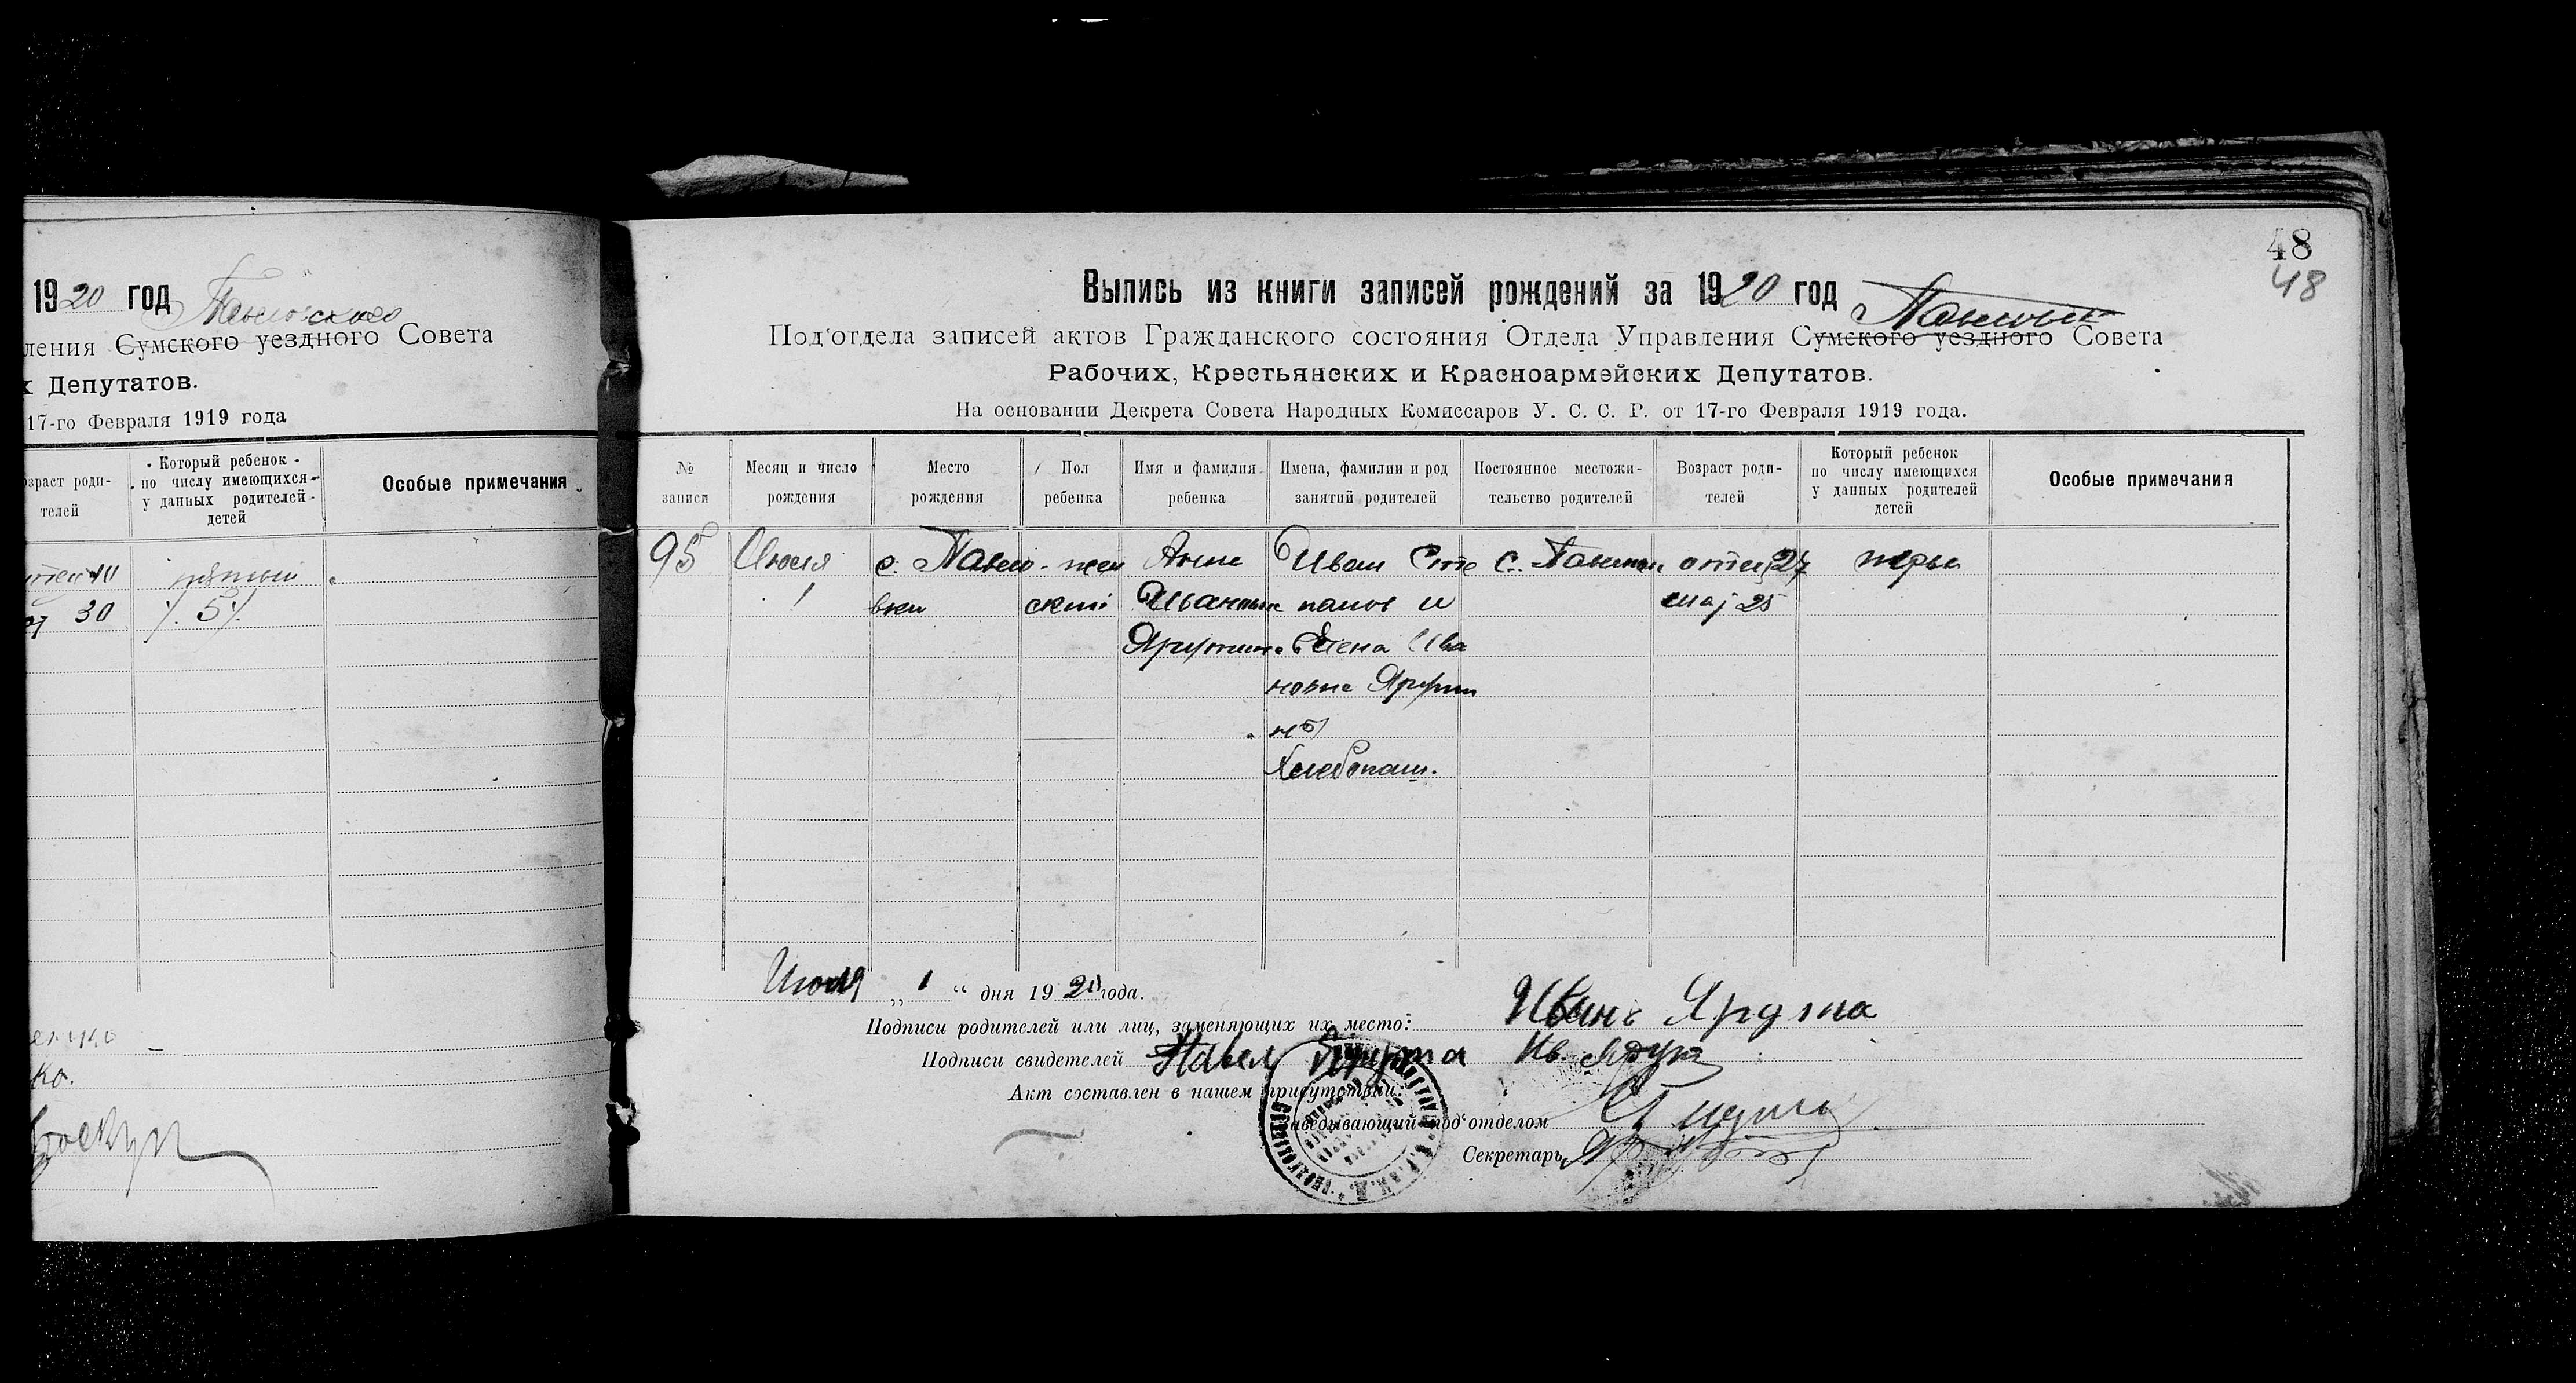 1920 год
ления Сумского уездного Совета
х Депутатов.
17-го Февраля 1919 года
зраст роди-
телей
Который ребенок
по числу имеющихся
у данных родителей
детей
Особые примечания
пятый
30 5
48
48
Выпись из книги записей рождений за 1920 год
Под'отдела записей актов Гражданского состояния Отдела Управления Сумского уездного Совета
Рабочих, Крестьянских и Красноармейских Депутатов.
На основании Декрета Совета Народных Комиссаров У. С. С. Р. от 17-го Февраля 1919 года.
№
записи
Месяц и число
рождения
Место
рождения
Пол
ребенка
Имя и фамилия
ребенка
Имена, фамилии и род
занятий родителей
Постоянное местожи-
тельство родителей
Возраст роди-
телей
Который ребенок
по числу имеющихся
у данных родителей
детей
Особые примечания
95 Июля с. Павло- жен Анна Иван Сте с. отец 27
1 вки ский панов и 25
Елена Ива
новна
Хлебопаш.
Июля „ 1 “ дня 1920 года.
Подписи родителей или лиц, заменяющих их место: Иванъ
Подписи свидетелей Павел Ив.
Акт составлен в нашем присутствии:
Заведывающий под'отделом
Секретарь